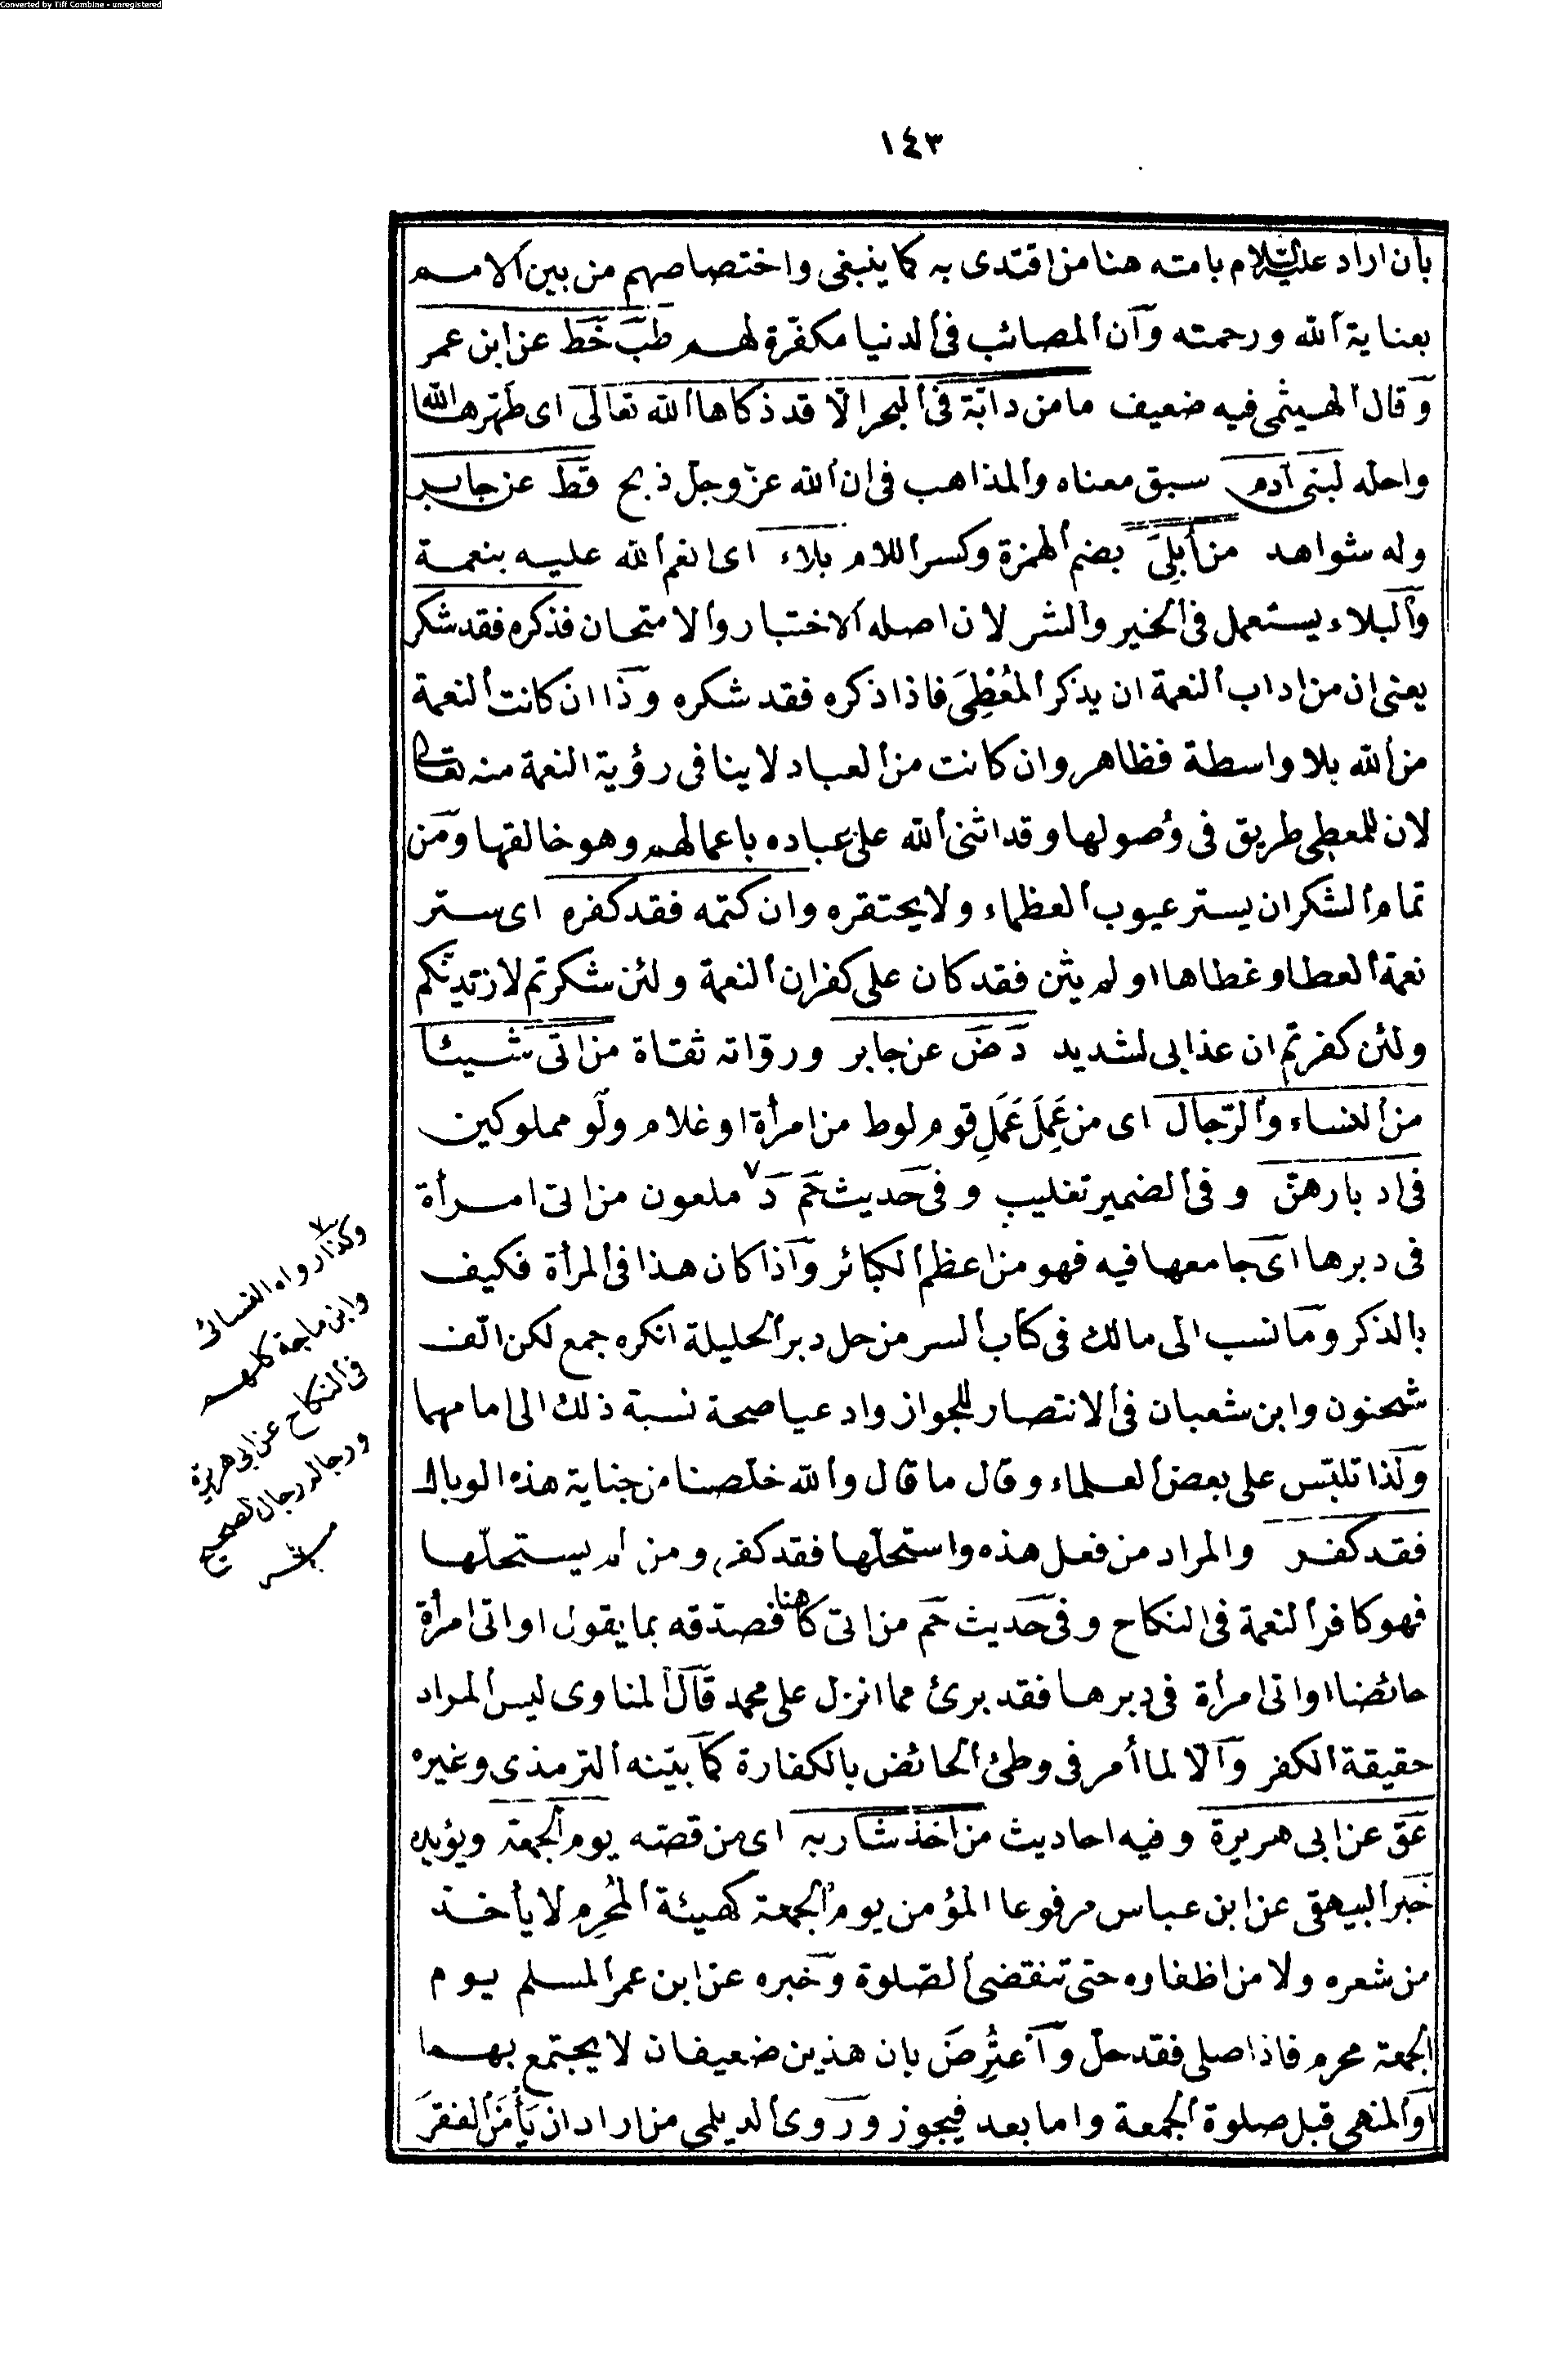 Converted by Tiff Combine - unregistered
١٤٣
بأن اراد عليه السلام بامته هنا من اقتدى به كما ينبغى واختصاصهم من بين الامم
بعناية الله ورحمته وآن المصائب فى الدنيا مكفّرة لهم طبّ خَط عن ابن عمر
وقال الهيثمى فيه ضعيف ما من دابّة فى البحر الّا قد ذكاها الله تعالى اى طهّرها الله
واحله لبنى آدم سبق معناه والمذاهب فى ان الله عزّ وجلّ ذبح قط عن جابر
وله شواهد من أُبلِىَ بضم الهمزة وكسر اللام بلاء اى انعم الله عليه بنعمة
وآلبلاء يستعمل فى الخير والشر لان اصله الاختبار والامتحان فذكره فقد شكر
يعنى ان من اداب النعمة ان يذكر المُعْطِىَ فاذا ذكره فقد شكره وذا ان كانت النعمة
من الله بلا واسطة فظاهر وان كانت من العباد لا ينافى رؤية النعمة منه تعالى
لان للمعطى طريق فى وُصولها وقد اثنى الله على عباده باعمالهم وهو خالقها ومن
تمام الشكر ان يستر عيوب العظاء ولا يحتقره وان كتمه فقد كفره اى ستر
نعمة العطا وغطاها او لم يثن فقد كان على كفران النعمة ولئن شكرتم لازيدنّكم
ولئن كفرتم ان عذابى لشديد دَ ضَ عن جابر ورواته ثقاة من اتى شيئا
من النساء والرّجال اى من عَمِلَ عَمَلِ قوم لوط من امرأة او غلام ولو مملوكين
فى ادبارهنّ وفى الضمير تغليب وفى حديث حَم دَ٧ ملعون من اتى امرأة
فى دبرها اى جامعها فيه فهو من اعظم الكبائر وآذا كان هذا فى المرأة فكيف
بالذكر ومآ نسب الى مالك فى كتاب السر من حل دبر الحليلة انكره جمع لكن الّف
سُحنون وابن شعبان فى الانتصار للجواز وادعيا صحة نسبة ذلك الى امامهما
ولذا تلبّس على بعض العلماء وقال ما قال والله خلّصنا من جناية هذه الوبال
فقد كفر والمراد من فعل هذه واستحلّها فقد كفر ومن لم يستحلّها
فهو كافر النعمة فى النكاح وفى حَديث حَم من اتى كاهنا فصدّقه بما يقول او اتى امرأة
حائضا او اتى امرأة فى دبرها فقد برئ مما انزل على محمد قال المناوى ليس المراد
حقيقة الكفر وآلّا لما أمر فى وطئ الحائض بالكفارة كما بيّنه الترمذى وغيره
عَق عن ابى هريرة وفيه احاديث من اخذ شاربه اى من قصّه يوم الجمعة ويؤيده
خبر البيهقى عن ابن عباس مرفوعا المؤمن يوم الجمعة كهيئة المُحرِم لا يأخذ
من شعره ولا من اظفاره حتى تنقضى الصّلوة وخبره عن ابن عمر المسلم يوم
الجمعة محرم فاذا صلى فقد حلّ وآعتُرِضَ بان هذين ضعيفان لا يجتمع بهما
او المنهى قبل صلوة الجمعة واما بعد فيجوز ورَوى الديلمى من اراد ان يأمن الفقرَ
٧
وكذا رواه النسائى
وابن ماجة كلهم
فى النكاح عن ابى هريرة
ورجاله رجال الصحيح